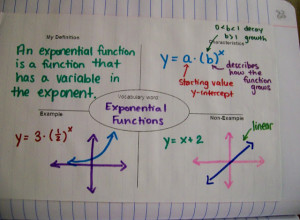 My Definition
An exponential function
is a function that
has a variable in
the exponent.
0<b<1 decay
b>1 growth
Characteristics
y = a · (b)ˣ
describes
how the
function
grows
starting value
y-intercept
Vocabulary word
Exponential
Functions
Example
y = 3 · (½)ˣ
Non-Example
y = x + 2
linear